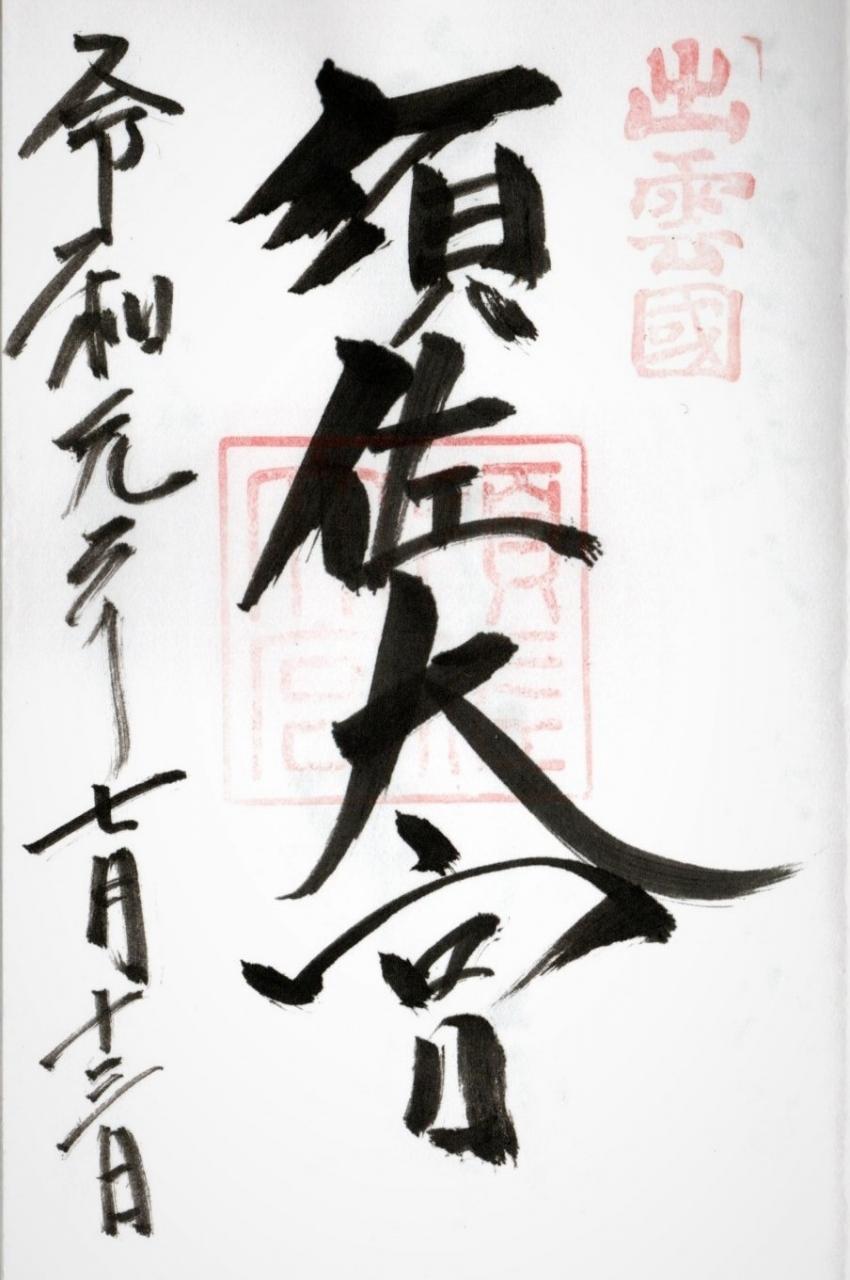 出雲國
須佐大宮
令和元年七月十三日